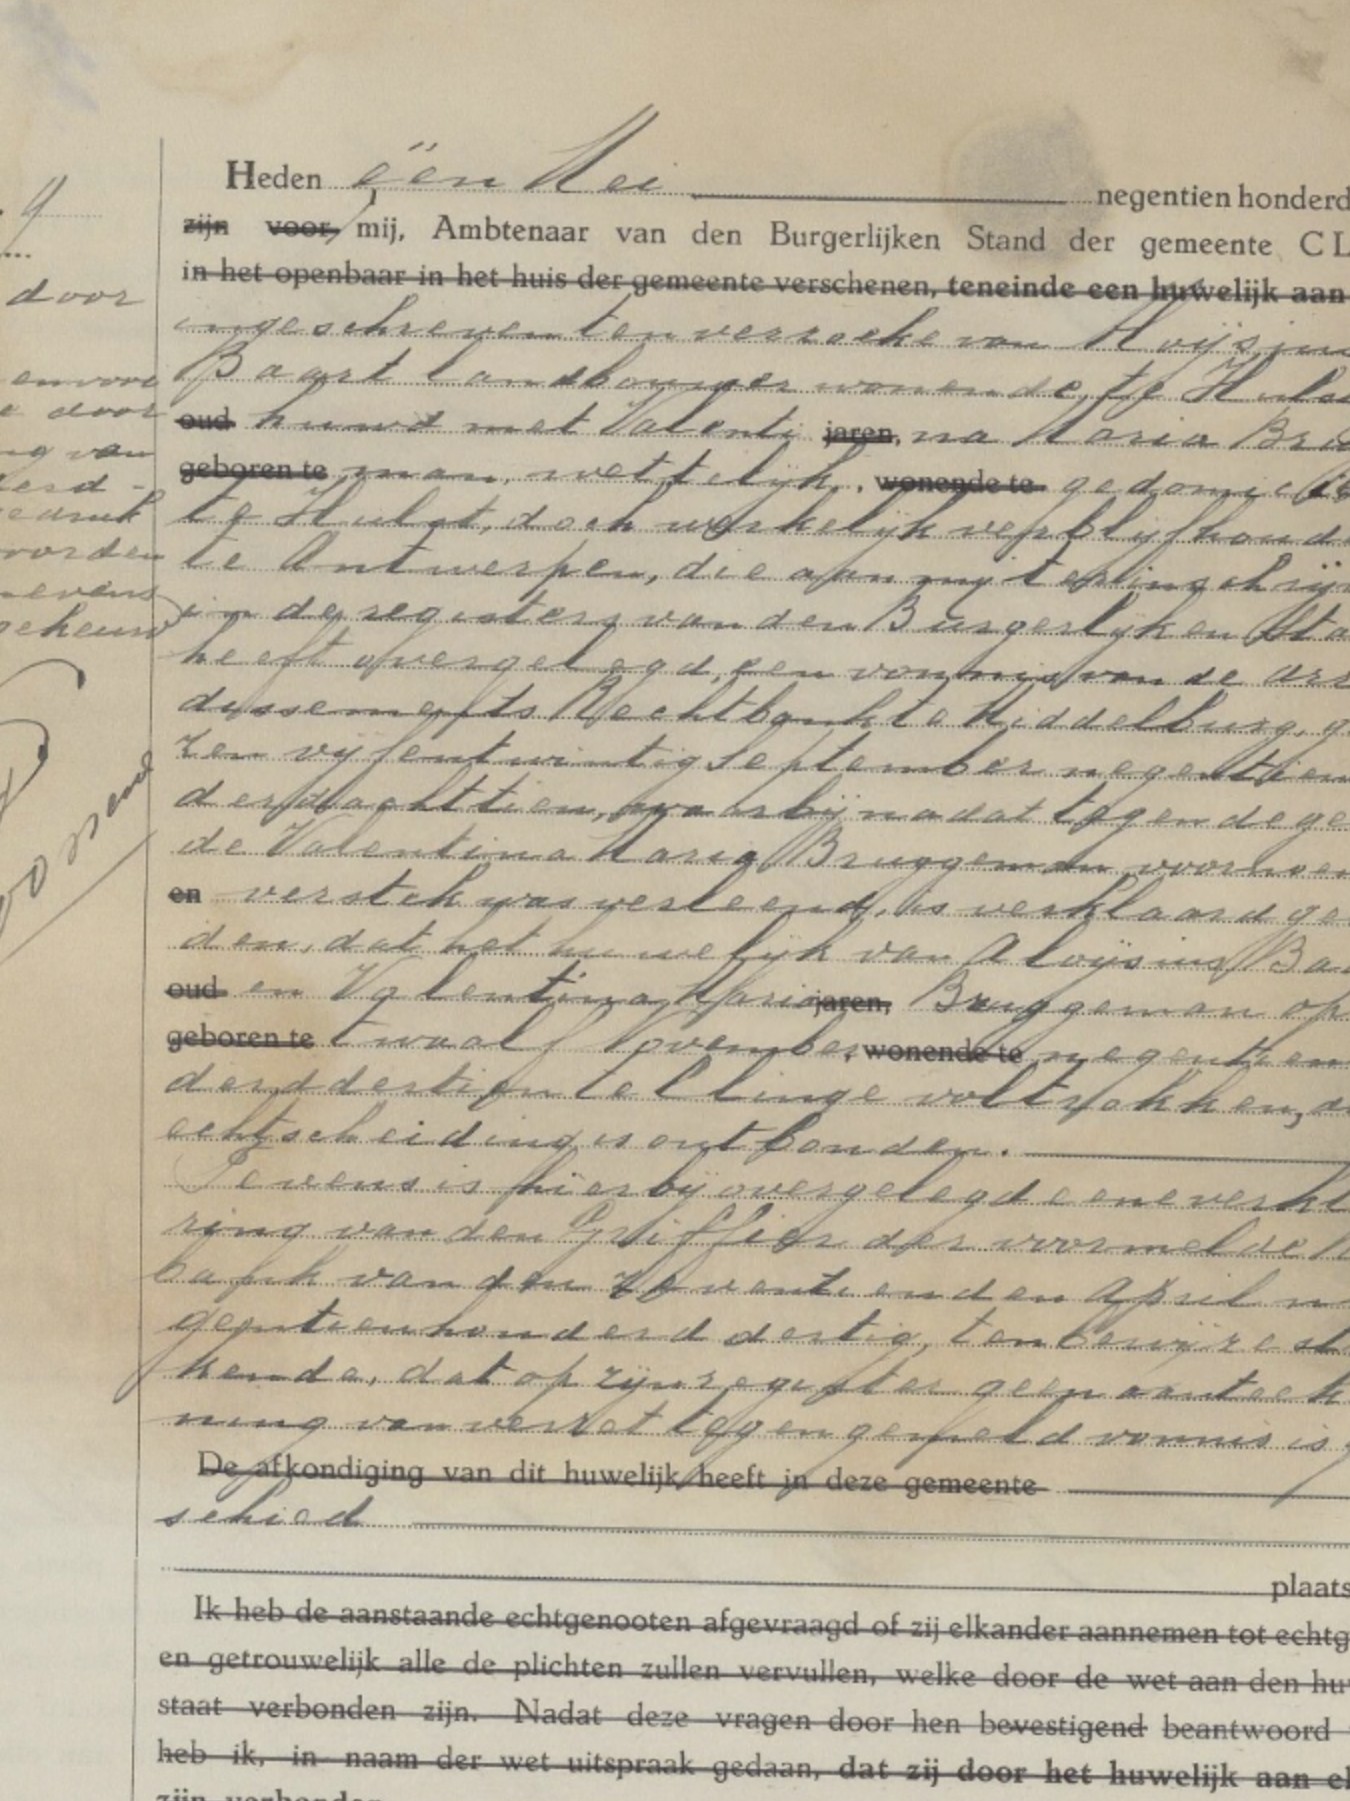 9
door
envoor
door
ng van
derd -
gedruk
worden
nevens
gekeurd
Heden één Mei negentien honderd
zijn voor mij, Ambtenaar van den Burgerlijken Stand der gemeente CL
in het openbaar in het huis der gemeente verschenen, teneinde een huwelijk aan
ingeschreven ten verzoeke van Aloÿsius
Baart landbouwer wonende te Huls
oud huwd met Valenti jaren, na Maria Bru
geboren te man, wettelijk, wonende te gedomicil
te Hulst, doch werkelijk verblijfhoude
te Antwerpen, die aan mij ter inschrijv
in de registers van den Burgerlijken Sta
heeft overgelegd, een vonnis van de arr
dissements Rechtbank te Middelburg, g
zen vijfentwintig September negentien
derd achttien, waarbij nadat tegen de ge
de Valentina Maria Bruggeman voornoem
en verstek was verleend, is verklaard ge
den, dat het huwelijk van Aloÿsius Ba
oud en Valentina Maria jaren, Bruggeman op
geboren te twaalf November, wonende te negentien
derd dertien te Clinge voltrokken, d
echtscheiding is ontbonden.
Tevens is hierbij overgelegd eene verkl
ring van den Griffier der voormelde R
bank van den zeventienden April n
gentienhonderd dertig, ten bewijze st
kende, dat op zijn register geen aanteek
ning van verzet tegen gemeld vonnis is g
De afkondiging van dit huwelijk heeft in deze gemeente
schied
plaats
Ik heb de aanstaande echtgenooten afgevraagd of zij elkander aannemen tot echtg
en getrouwelijk alle de plichten zullen vervullen, welke door de wet aan den hu
staat verbonden zijn. Nadat deze vragen door hen bevestigend beantwoord
heb ik, in naam der wet uitspraak gedaan, dat zij door het huwelijk aan el
zijn verbonden